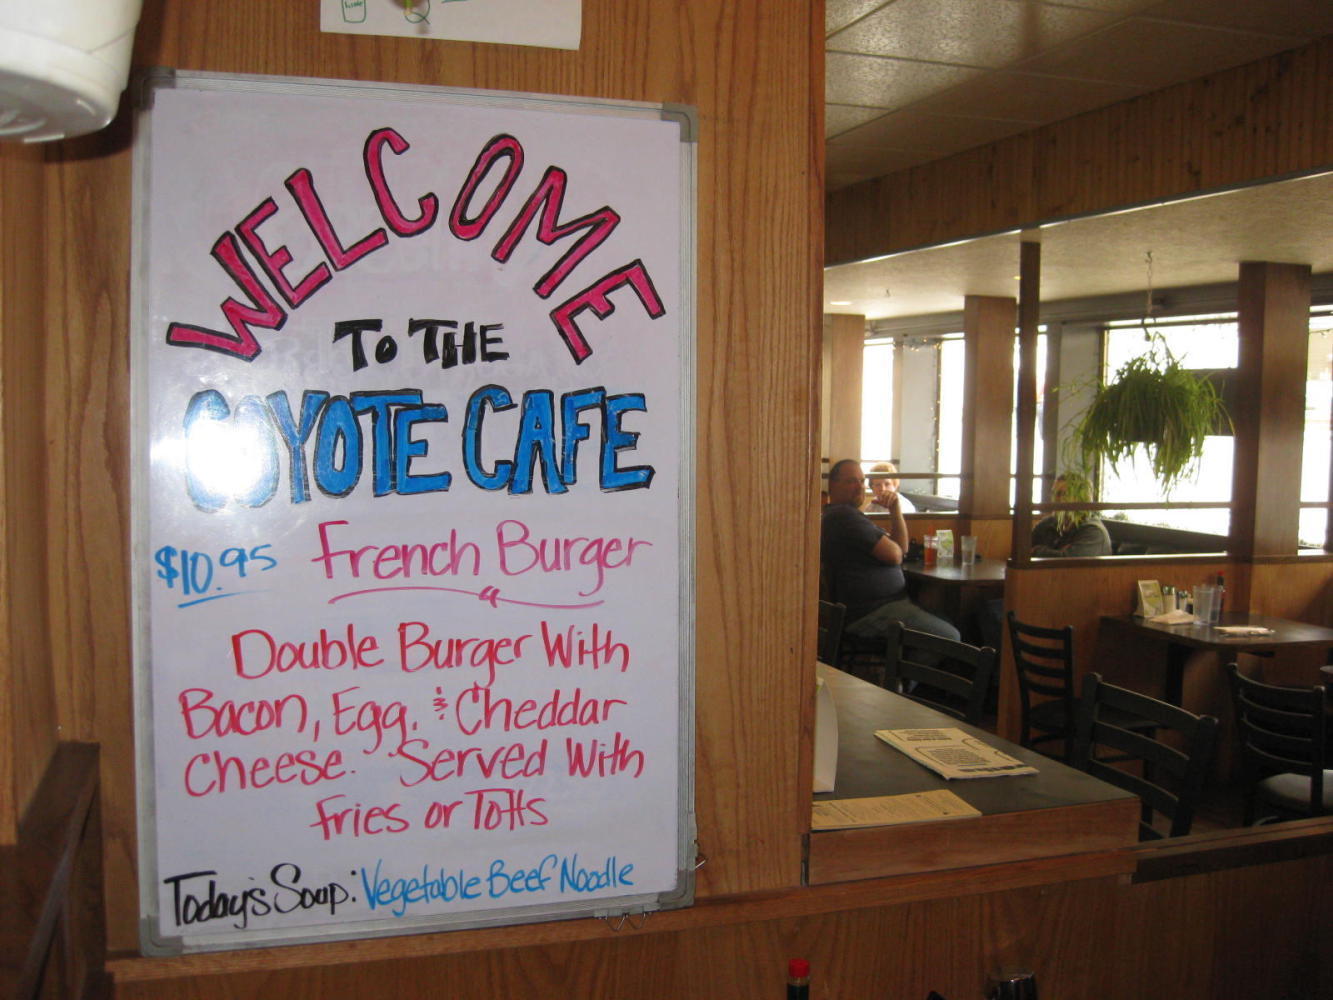 WELCOME
TO THE
COYOTE CAFE
$10.95 French Burger
Double Burger With
Bacon, Egg, & Cheddar
Cheese. Served With
Fries or Totts
Today's Soup: Vegetable Beef Noodle